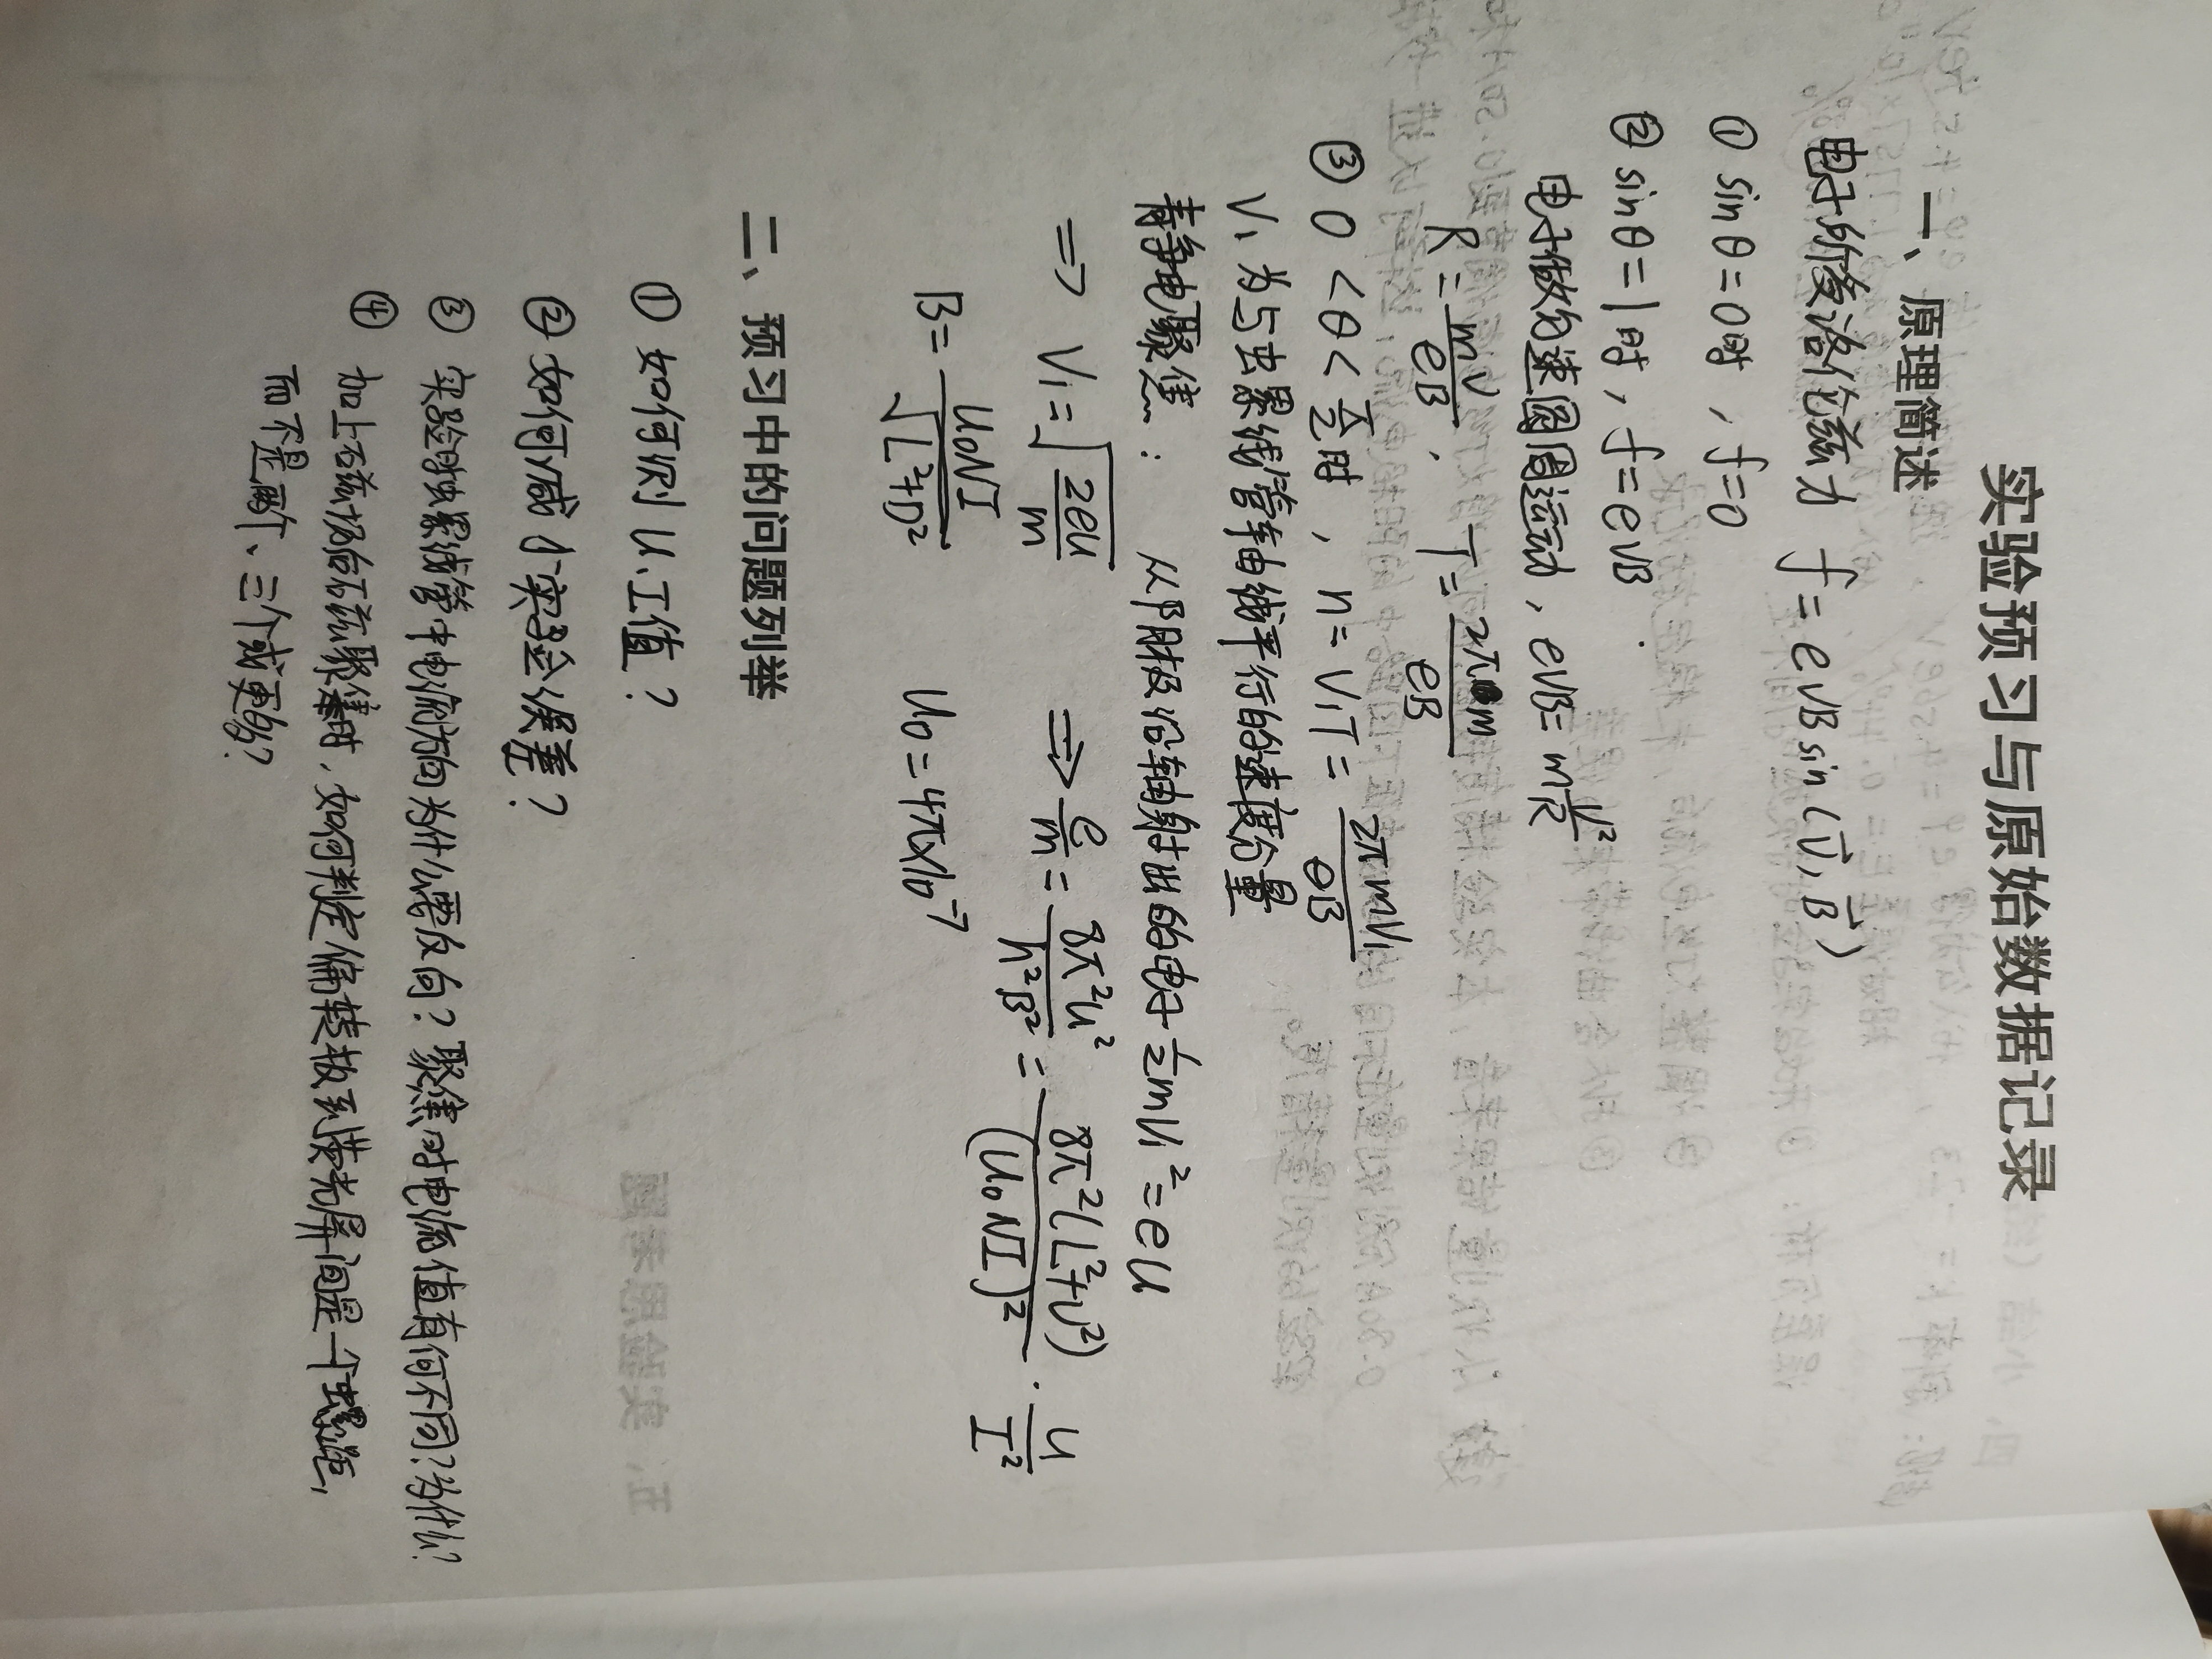 实验预习与原始数据记录
一、原理简述
电子所受洛伦兹力 f=eVBsin(V,B)
① sinθ=0时，f=0
② sinθ=1时，f=eVB
电子做匀速圆周运动，eVB=mV²/R
R=mV/eB， T=2πm/eB
③ 0<θ<π/2时，h=V₁T=2πmV₁/eB
V₁为与螺线管轴线平行的速度分量
静电聚焦： 从阴极沿轴射出的电子½mV₁²=eu
⇒ V₁=√(2eu/m) ⇒ e/m=8π²u²/h²B²=8π²(L²+D²)/(u₀NI)²·u/I²
B=u₀NI/√(L²+D²) u₀=4π×10⁻⁷
二、预习中的问题列举
① 如何测U、I值？
② 如何减小实验误差？
③ 实验时螺线管中电流方向为什么需反向？聚焦时电流值有何不同？为什么？
④ 加上磁场后磁聚焦时，如何判定偏转板到荧光屏间是一个螺距，
而不是两个、三个或更多？